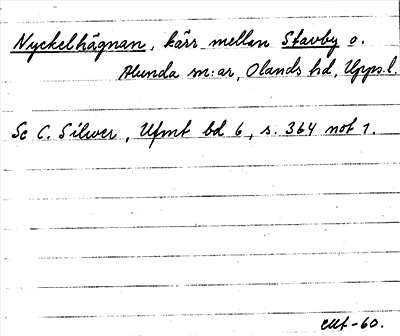 Nyckelhägnan, kärr mellan Stavby o.
Alunda sn:ar, Olands hd, Upps.l.
Se C. Silwer, Ufmt bd 6, s. 364 not 1.
-60.